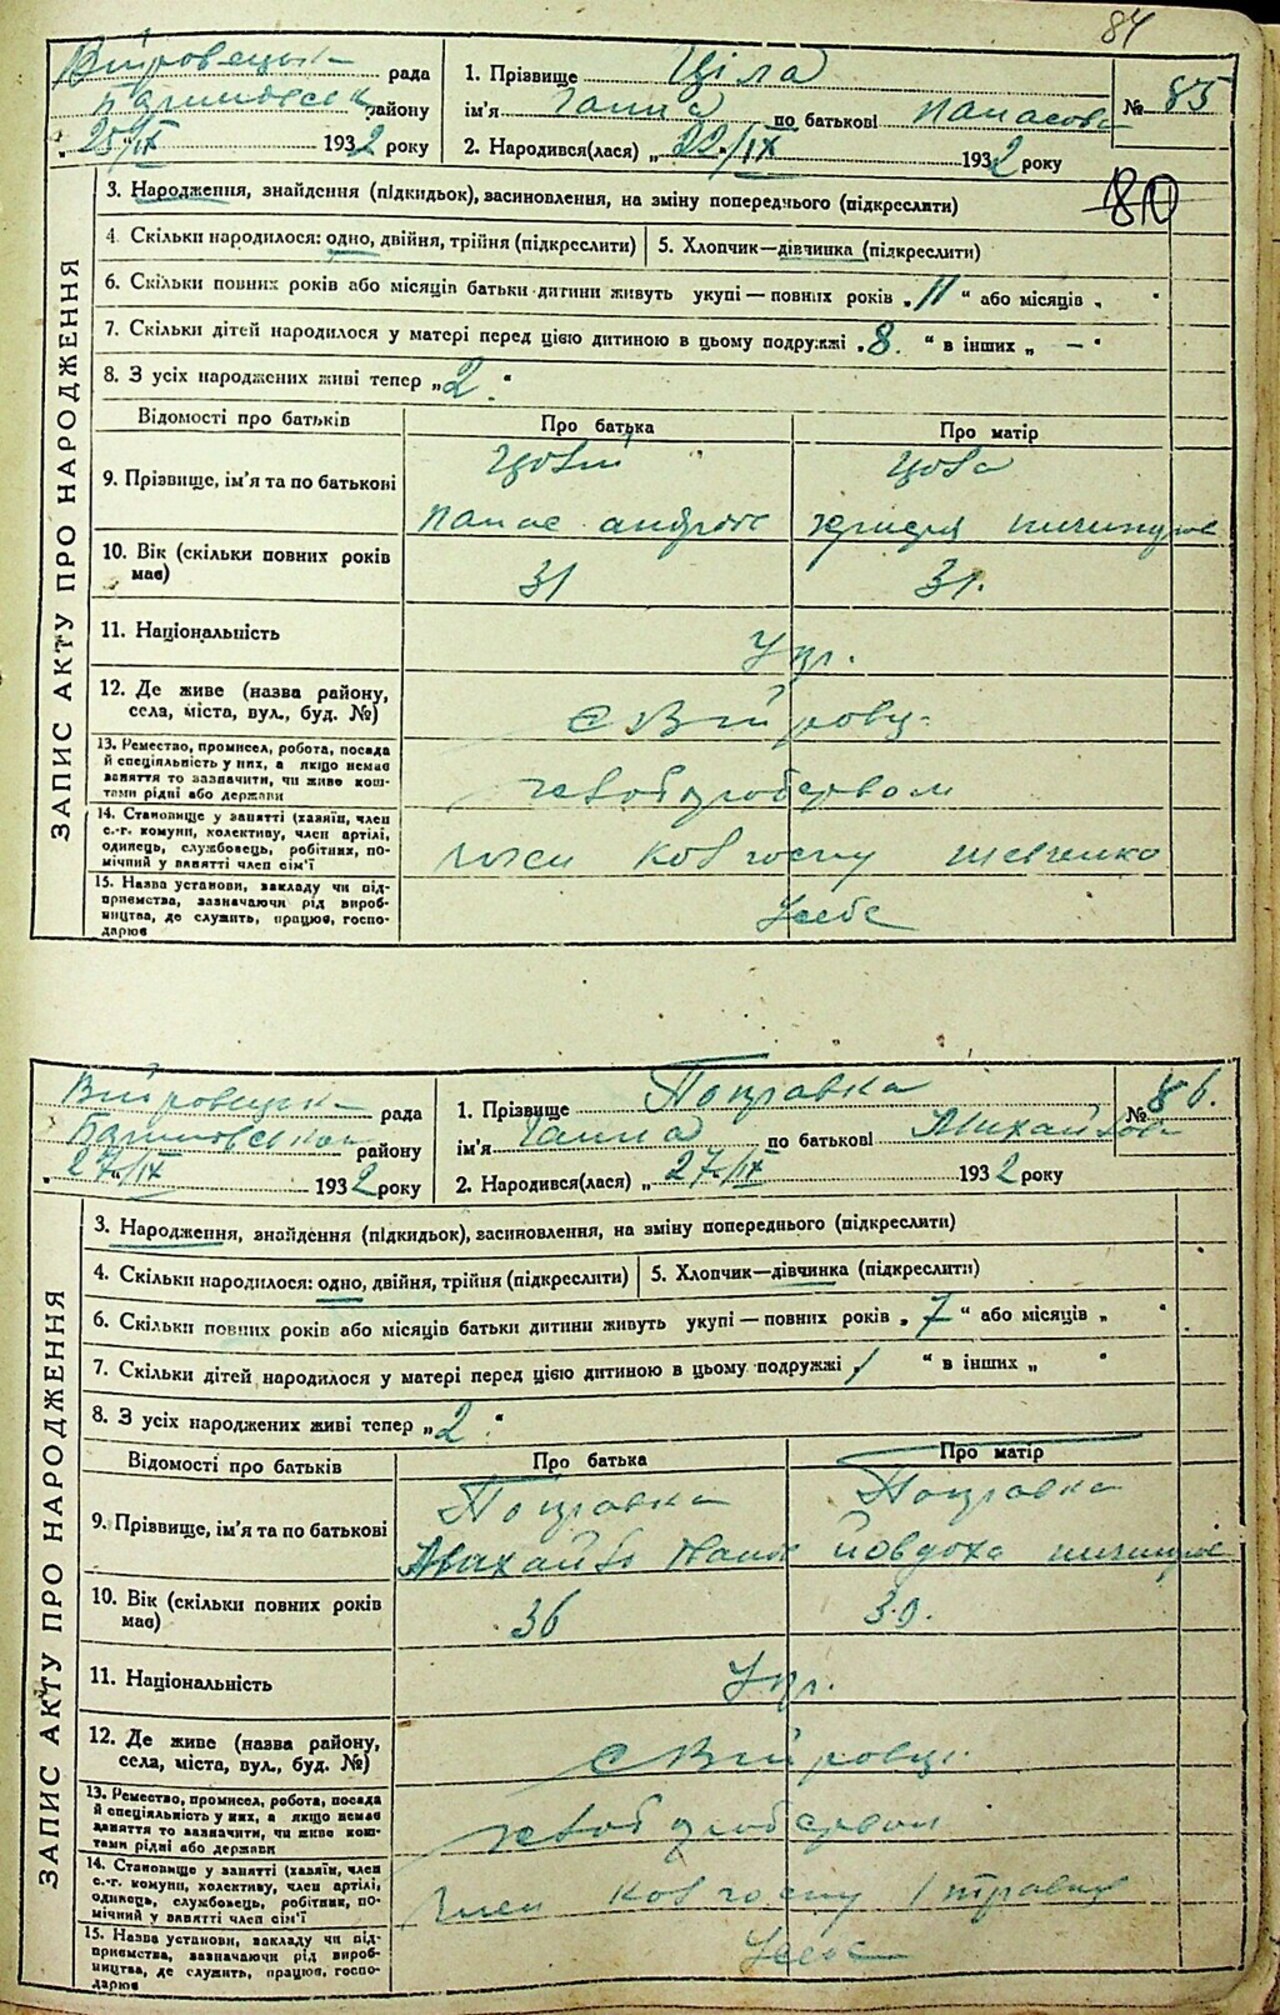 84
рада
району
25/IX 1932 року
1. Прізвище Ціла
ім'я Ганна по батькові Панасовн
2. Народився(лася) „22“/IX 1932 року
№ 85
80
ЗАПИС АКТУ ПРО НАРОДЖЕННЯ
3. Народження, знайдення (підкидьок), засиновлення, на зміну попереднього (підкреслити)
4. Скільки народилося: одно, двійня, трійня (підкреслити) 5. Хлопчик—дівчинка (підкреслити)
6. Скільки повних років або місяців батьки дитини живуть укупі — повних років „11“ або місяців „ “
7. Скільки дітей народилося у матері перед цією дитиною в цьому подружжі „8.“ в інших „ — “
8. З усіх народжених живі тепер „2.“
Відомості про батьків Про батька Про матір
9. Прізвище, ім'я та по батькові
Панас
10. Вік (скільки повних років має) 31 31.
11. Національність Укр.
12. Де живе (назва району, села, міста, вул., буд. №)
13. Ремество, промисел, робота, посада
й спеціяльність у них, а якщо немає
заняття то зазначити, чи живе кош-
тами рідні або держави
хлібозлобством
14. Становище у занятті (хазяїн, член
с.-г. комуни, колективу, член артілі,
одинець, службовець, робітник, по-
мічний у занятті член сім'ї
член колгоспу Шевченко
15. Назва установи, закладу чи під-
приємства, зазначаючи рід вироб-
ництва, де служить, працює, госпо-
дарює
У себе
рада
району
27/IX 1932 року
1. Прізвище Поправка
ім'я Ганна по батькові Михайлов
2. Народився(лася) „27“/IX 1932 року
№ 86.
ЗАПИС АКТУ ПРО НАРОДЖЕННЯ
3. Народження, знайдення (підкидьок), засиновлення, на зміну попереднього (підкреслити)
4. Скільки народилося: одно, двійня, трійня (підкреслити) 5. Хлопчик—дівчинка (підкреслити)
6. Скільки повних років або місяців батьки дитини живуть укупі — повних років „7“ або місяців „ “
7. Скільки дітей народилося у матері перед цією дитиною в цьому подружжі „1 “ в інших „ “
8. З усіх народжених живі тепер „2.“
Відомості про батьків Про батька Про матір
Поправка Поправка
9. Прізвище, ім'я та по батькові
Михайло Йовдоха
10. Вік (скільки повних років має) 36 30.
11. Національність Укр.
12. Де живе (назва району, села, міста, вул., буд. №)
13. Ремество, промисел, робота, посада
й спеціяльність у них, а якщо немає
заняття то зазначити, чи живе кош-
тами рідні або держави
14. Становище у занятті (хазяїн, член
с.-г. комуни, колективу, член артілі,
одинець, службовець, робітник, по-
мічний у занятті член сім'ї
член колгоспу 1 травня
15. Назва установи, закладу чи під-
приємства, зазначаючи рід вироб-
ництва, де служить, працює, госпо-
дарює
У себе